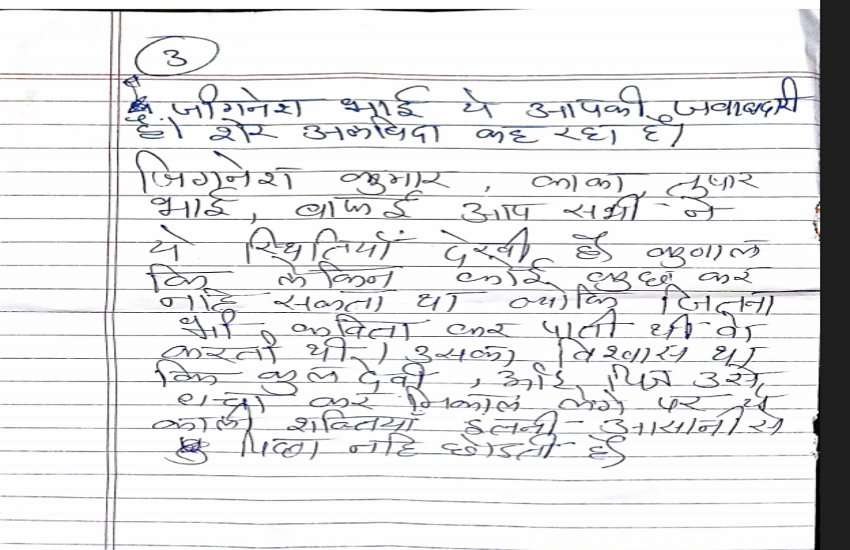 3
जीगनेश भाई ये आपकी जवाबदारी
है। शेर अलविदा कह रहा है।
जिगनेश कुमार, काका तुषार
भाई, बाकई आप सभी ने
ये स्थितियाँ देखी है कुणाल
कि लेकिन कोई कुछ कर
नहि सकता था क्योकि जितना
भी कविता कर पाती थी वो
करती थी। उसका विश्वास था
कि कुलदेवी, उसे
बचा कर निकाल लेगे पर ये
काली शक्तियाँ इतनी आसानीसे
पिछा नहि छोडती है